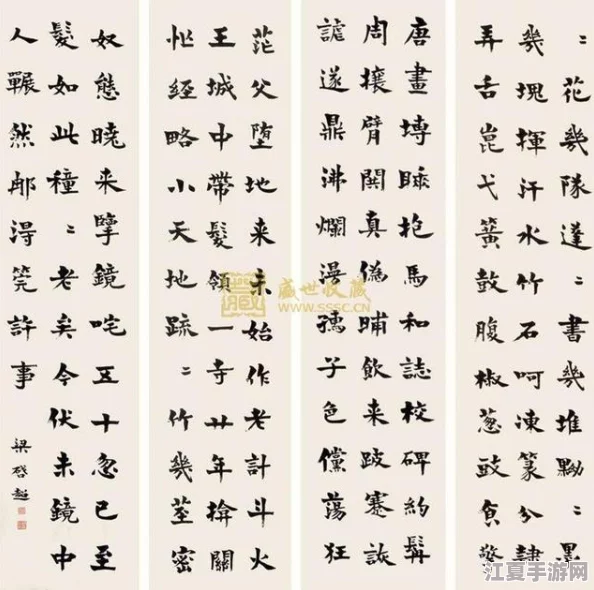 〻花幾隊達〻書幾堆黝〻墨
幾塊揮汗水竹石呵凍篆分隸
弄舌崑弋簧鼓腹椒葱豉食
唐畫塼睡抱馬和誌校碑約髯
周攘臂閧真偽晡飲來跛蹇詼
諧遂鼎沸爛漫孺子色儻蕩狂
茫父墮地來未始作老計斗火
王城中帶髮領一寺廿年揜關
忙經略小天地疏〻竹幾莖密
奴態曉來擥鏡咤五十忽已至
髮如此種〻老矣今伏未鏡中
人囅然那得筦許事
梁啓超
盛世收藏
WWW.SSSC.CN
江夏手游网